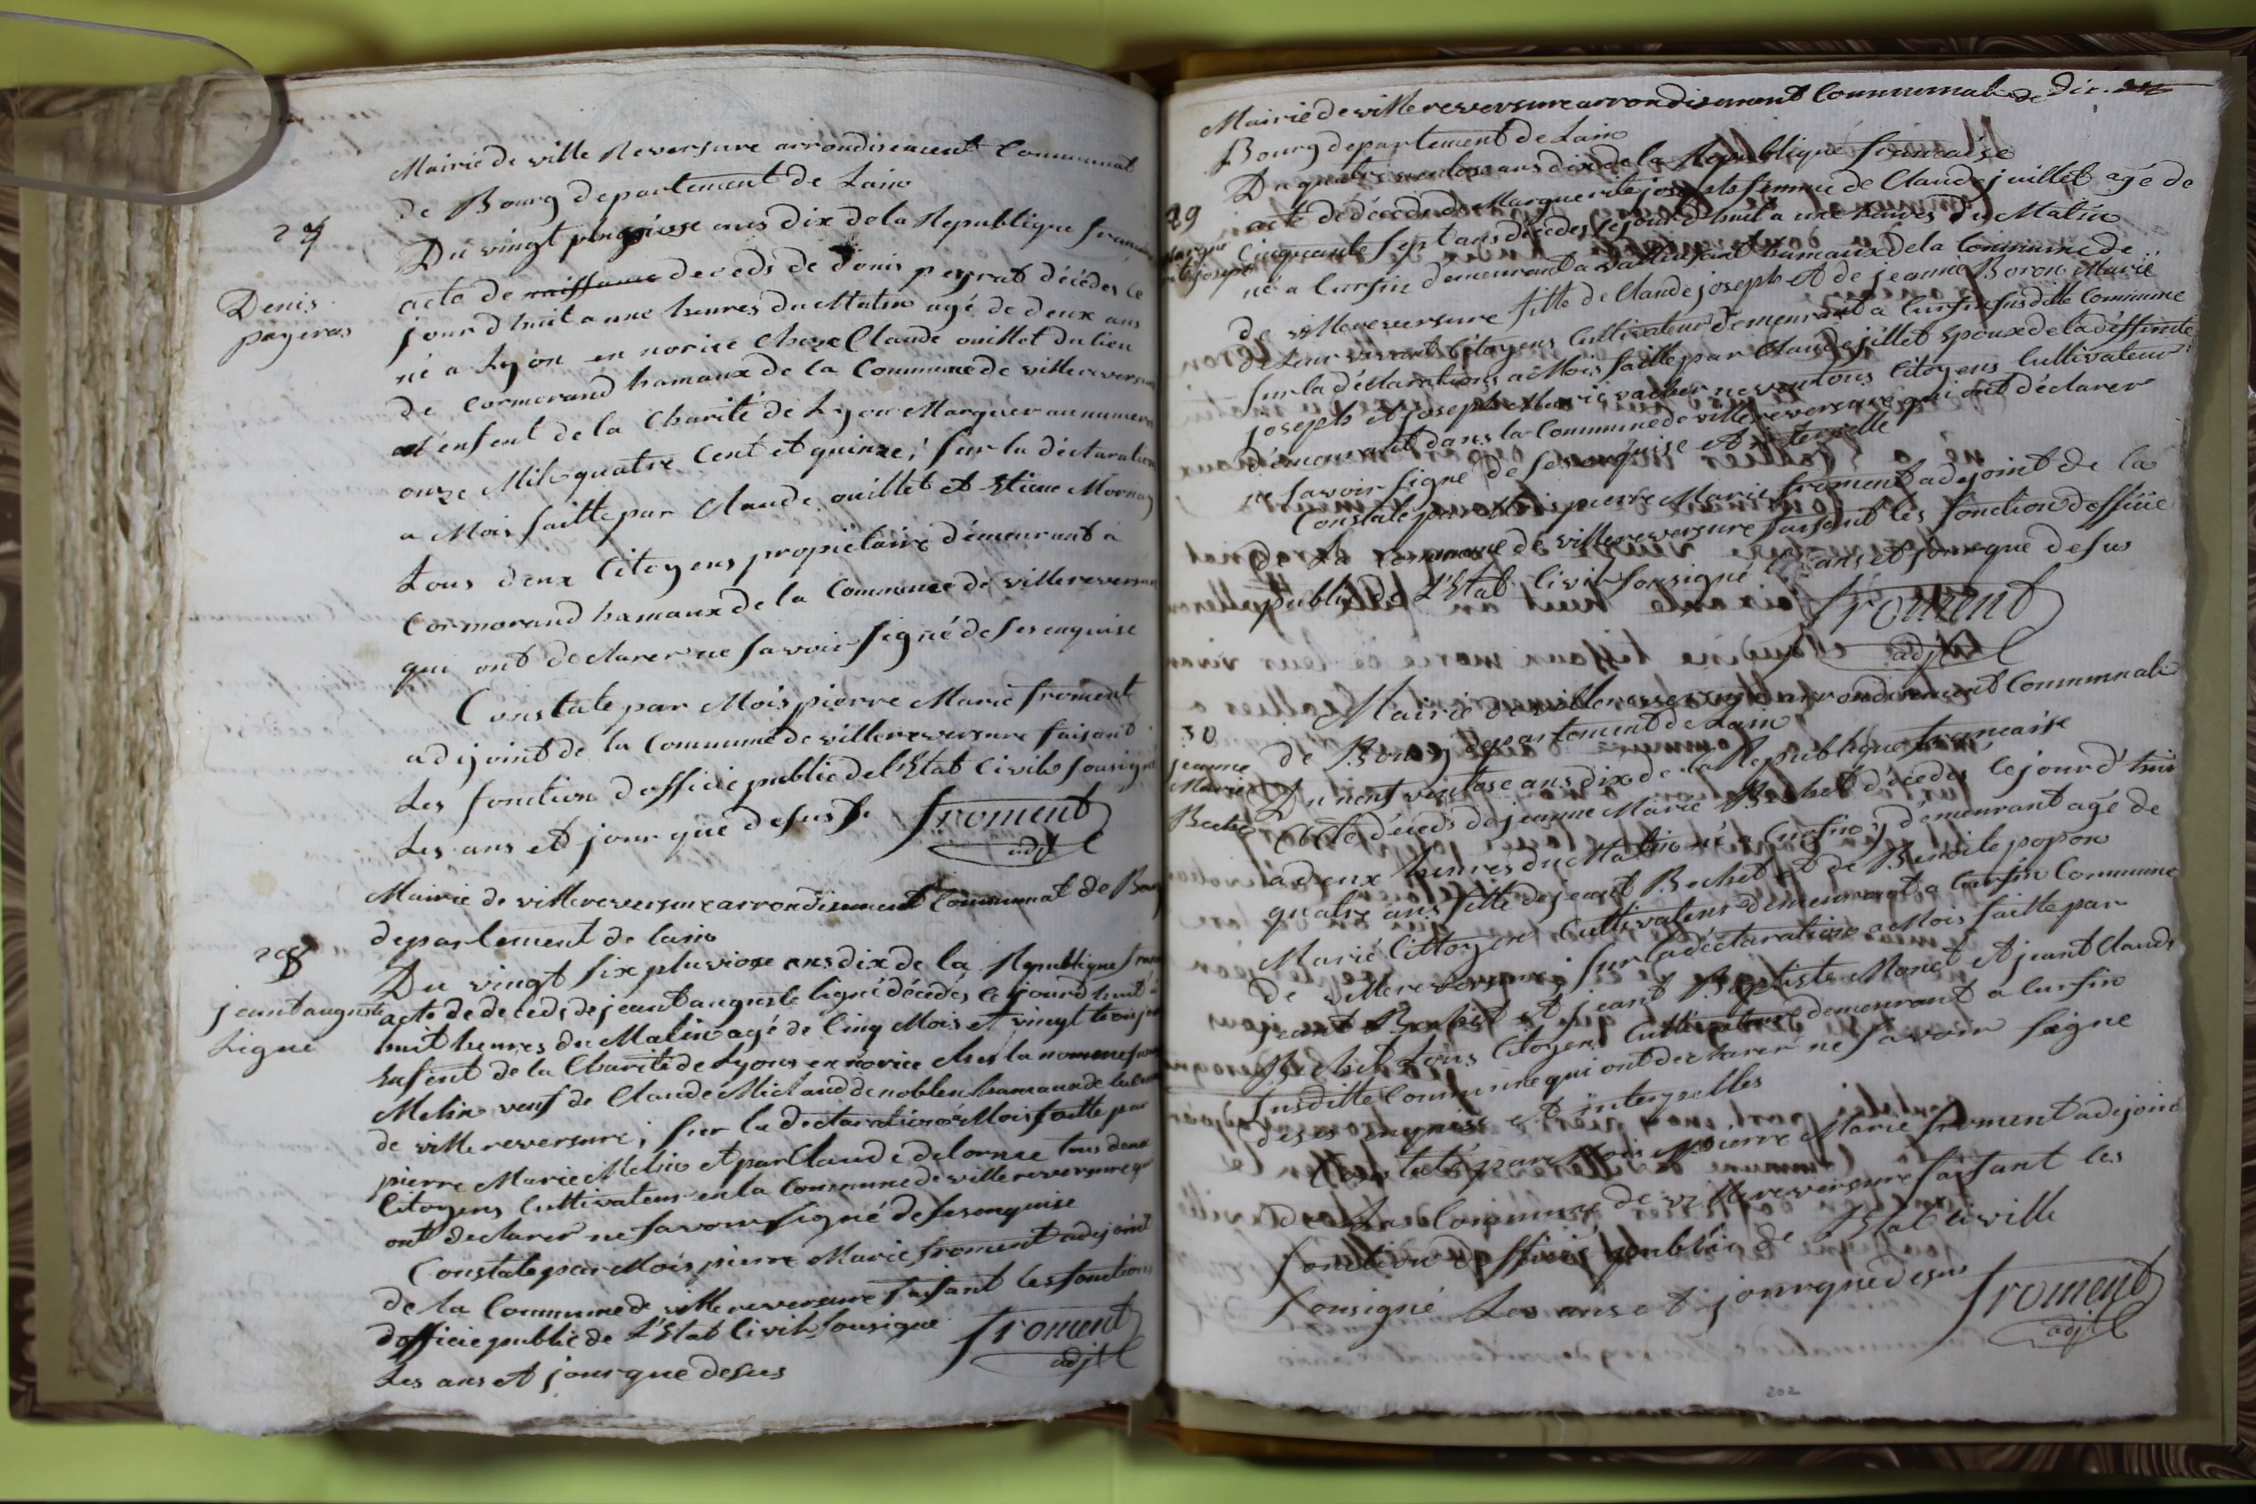 Mairie de ville Reversure arrondisement Communal
de Bourg departement de Lain
27
Du vingt pluviose ans dix de la Republique francaise
Denis
payeras
acte de naissance deceds de denis peyrat décédes ce
jourd huit a une heures du Matin agé de deux ans
né a Lyon en norice cheze Claude ouillet du lieu
de Cormorand hamaux de la Commune de villereversure
et enfent de la Charité de Lyon Marquer au numero
onze Mil quatre Cent et quinze ; sur la déclaration
a Mois faitte par Claude ouillet et Etiene Mornay
tous deux Citoyens propiétaire démeurant a
Cormorand hamaux de la Commune de villereversure
qui ont declarer ne savoir signé de ses enquise
Constate par Mois pierre Marie froment
adjoint de la Commune de villereversure faisant
Les fonction d officié public de l'Etat Civil sousigné
Les ans et jour que desus
froment
adjt
Mairie de villereversure arrondisement Communal de Bourg
departement de Lain
28
Du vingt six pluviose ans dix de la Republique francaise
jeant auguste
Ligné
acte de deceds de jeant auguste ligné décédés ce jourd huit a
huit heures du Matin agé de Cinq Mois et vingt trois jour
Enfent de la Charité de Lyons en norice ches la nommé
Melin veuf de Claude Michaud de noblen hamaux de la Commune
de villereversure ; sur la declaration a Mois faitte par
pierre Marie Melin et par Claude delorme tous deux
Citoyens Cultivateur en la Commune de villereversure qui
ont declarer ne savoir signé de ses enquise
Constate par Mois pierre Marie froment adjoint
de la Commune de villereversure faisant les fonctions
d officié public de L'Etat Civil sousigné
Les ans et jour que desus
froment
adjt
Mairie de villereversure arrondisement Communal de
Bourg departement de Lain
Du quatre ventose ans dix de la Republique francaise
29
acte de déceds de Marguerite joseph femme de Claude juillet agé de
Cinquante sept ans décédes ce jourd huit a une heures du Matin
né a Cursin demeurant a hamaux de la Commune de
de villereversure fille de Claude joseph et de jeanne Boron Marié
de leur vivant Citoyens Cultivateur demeurant a Cursin susditte Commune
sur la déclarations a Mois faitte par Claude jillet epoux de la deffunte
joseph et joseph Marie vacher neveu tous Citoyens Cultivateur
demeurant dans la Commune de villereversure qui ont déclarer
ne savoir signé de ses enquise et interpelle
Constate par Mois pierre Marie froment adjoint de la
de La Commune de villereversure faisant les fonction d officié
public de L'Etat Civil sousigné Les ans et jour que desus
froment
adjt
Mairie de villereversure arrondisement Communale
30
de Bourg departement de Lain
jeanne
Marie
Bechet
Du neuf ventose ans dix de la Republique francaise
acte déceds de jeanne Marie Bechet décédes ce jourd'huit
a deux heures du Matin né a Cursin y démeurant agé de
quatre ans fille de jeant Bechet et de Benoite popon
Marié Cittoyen Cultivateur demeurant a Cursin Commune
de villereversure ; sur la déclaration a Mois faitte par
jeant Bechet et jeant Baptiste Monet et jeant Claude
Bechet tous Citoyens Cultivateur demeurant a Cursin
susditte Commune qui ont declarer ne savoir signe
de ses enquise et interpelles
Constaté par Mois pierre Marie froment adjoint
de La Commune de villereversure faisant les
fonction d officié public de L'Etat Civille
sousigné Les ans et jour que desus
froment
adjt
202